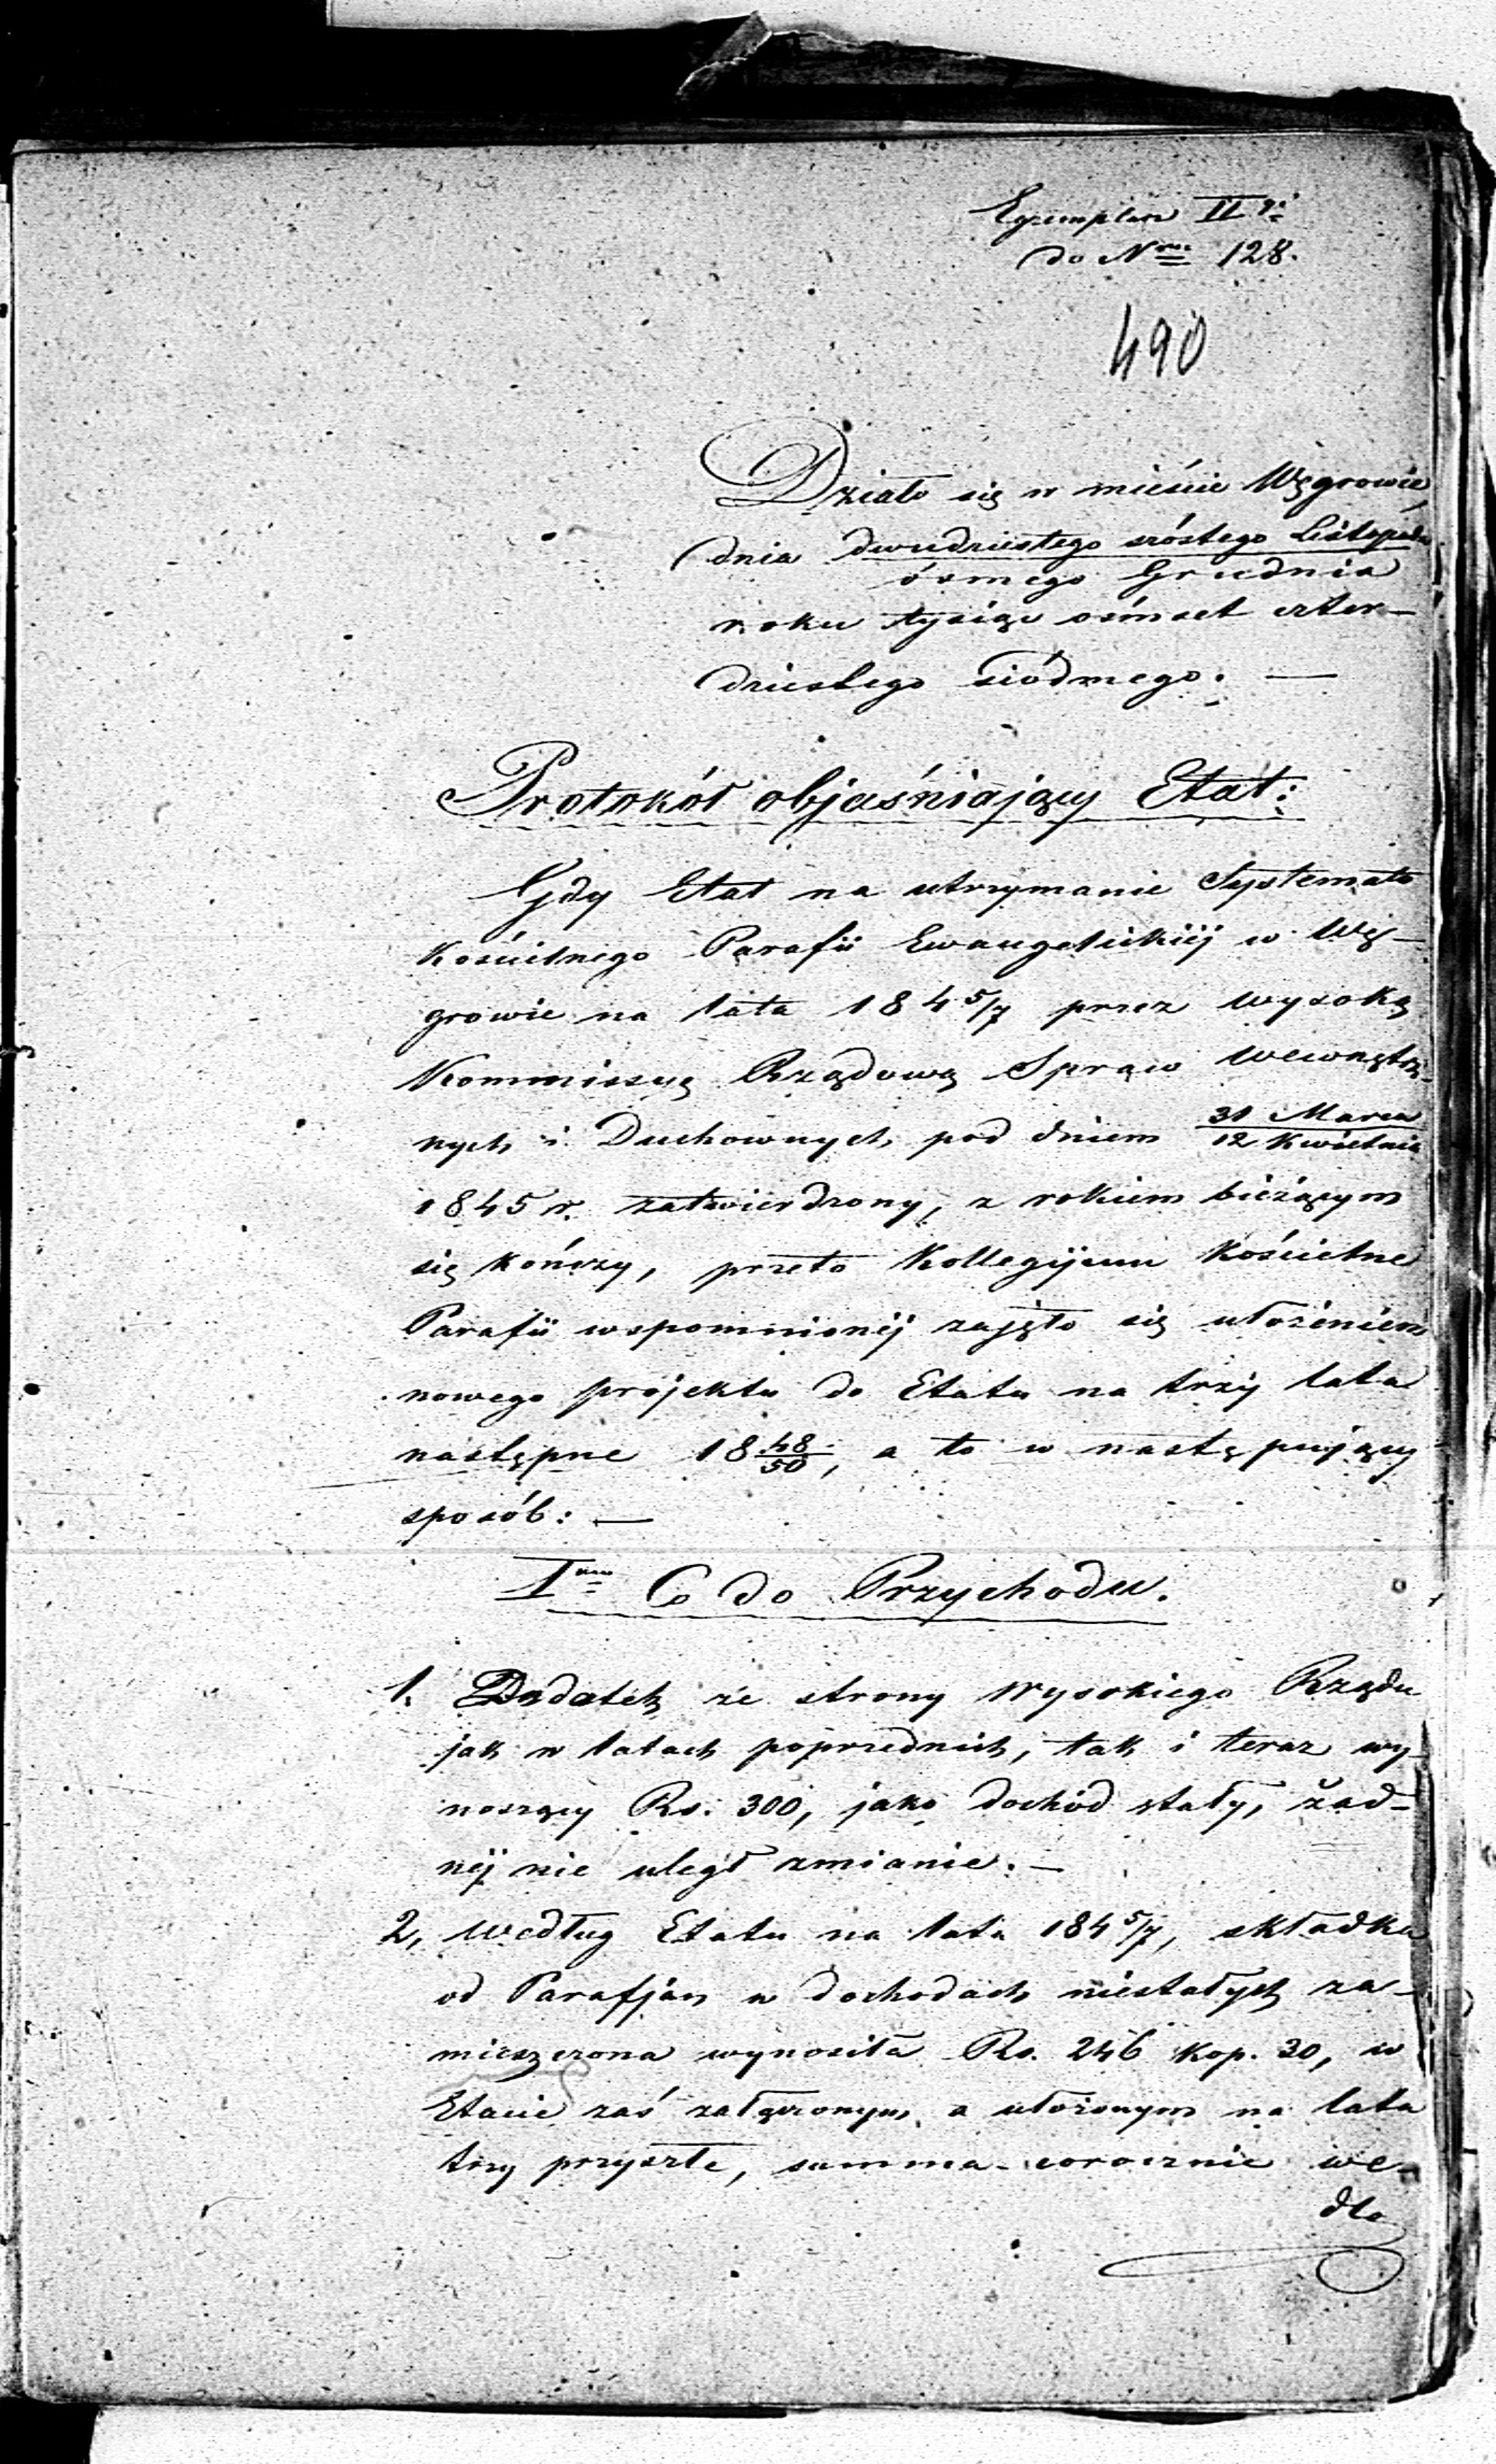 Egzemplarz II gi
do Nru 128.
490
Działo się w mieście Węgrowie,
dnia dwudziestego szóstego Listopada
ósmego Grudnia
roku tysiąc ośmset czter-
dziestego siódmego. —
Protokół objaśniający Etat:
Gdy Etat na utrzymanie Systemato
Kościelnego Parafii Ewangelickiéj w Wę-
growie na lata 184 5/7 przez wysoką
Kommissyą Rządową Spraw Wewnętrz-
nych i Duchownych pod dniem 31 Marca
12 Kwietnia
1845 r. zatwierdzony, z rokiem bieżącym
się kończy, przeto Kollegijum Kościelne
Parafii wspomnionéj zajęło się ułożeniem
nowego projektu do Etatu na trzy lata
następne 18 48/50, a to w następujący
sposób: —
I mo Co do Przychodu.
1. Dodatek ze strony Wysokiego Rządu
jak w latach poprzednich, tak i teraz wy-
noszący Rs. 300, jako dochód stały, żad-
néj nie uległ zmianie. —
2, Według Etatu na lata 184 5/7, składka
od Parafjan w dochodach niestałych za-
mieszczona wynosiła Rs. 246 kop. 30, w
Etacie zaś załączonym a ułożonym na lata
trzy przyszłe, summa corocznie we-
dle